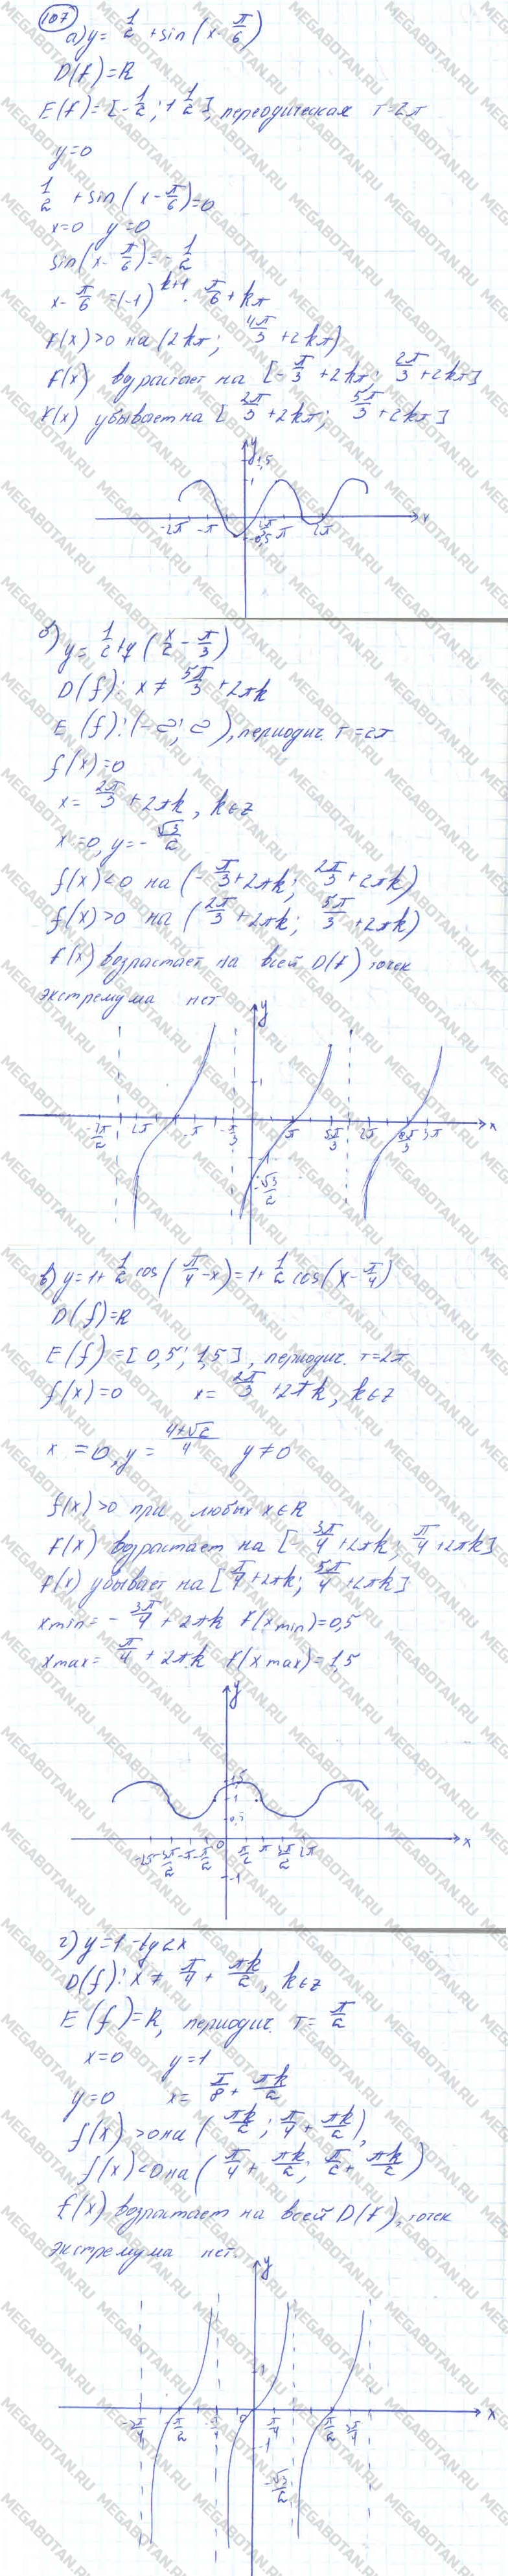 107
а) y = 1/2 + sin(x - π/6)
D(f)=R
E(f)=[-1/2; 1 1/2], переодическая T=2π
y=0
1/2 + sin(x - π/6)=0
x=0 y=0
sin(x - π/6) = -1/2
x - π/6 = (-1)^(k+1) · π/6 + kπ
f(x)>0 на (2kπ; 4π/3 + 2kπ)
f(x) возрастает на [-π/3 + 2kπ; 2π/3 + 2kπ]
f(x) убывает на [2π/3 + 2kπ; 5π/3 + 2kπ]
y
1,5
1
-2π -π π 2π x
-0,5
D(f): x ≠ 5π/3 + 2πk
периодич. T=2π
f(x)=0
x = 2π/3 + 2πk, k∈z
x=0, y=-√3/2
f(x)<0 на (-π/3 + 2πk; 2π/3 + 2πk)
f(x)>0 на (2π/3 + 2πk; 5π/3 + 2πk)
f(x) возрастает на всей D(f) точек
экстремума нет
y
1
2π -π -π/3 π 5π/3 2π 8π/3 3π x
-√3/2
в) y=1+ 1/2 cos(π/4 - x)=1+ 1/2 cos(x - π/4)
D(f)=R
E(f)=[0,5; 1,5], периодич. T=2π
f(x)=0 x= 2π/3 + 2πk, k∈z
x = 0, y = (4+√2)/4 y≠0
f(x)>0 при любых x∈R
f(x) возрастает на [-3π/4 + 2πk; π/4 + 2πk]
f(x) убывает на [π/4 + 2πk; 5π/4 + 2πk]
xmin = -3π/4 + 2πk f(xmin)=0,5
xmax = π/4 + 2πk f(xmax)=1,5
y
1,5
1
0,5
-2π -3π/2 -π -π/2 0 π/2 π 3π/2 2π x
-1
г) y=1-tg2x
D(f): x ≠ π/4 + πk/2, k∈z
E(f)=R, периодич. T= π/2
x=0 y=1
y=0 x= π/8 + πk/2
f(x)>0 на (πk/2; π/4 + πk/2)
f(x)<0 на (π/4 + πk/2; π/2 + πk/2)
f(x) возрастает на всей D(f), точек
экстремума нет
y
1
-3π/4 -π/2 0 π/4 π/2 3π/4 x
-1
-√3/2
MEGABOTAN.RU